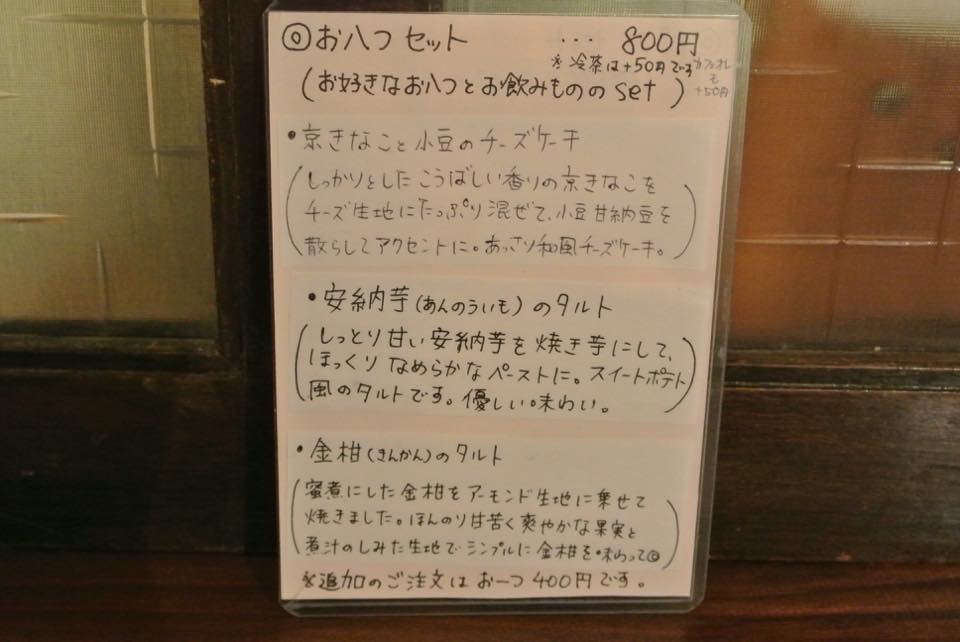 ◎お八つセット ... 800円
※冷茶は+50円です
カフェオレ
も
+50円
(お好きなお八つとお飲みもののset)
・京きなこと小豆のチーズケーキ
(しっかりとしたこうばしい香りの京きなこを
チーズ生地にたっぷり混ぜて、小豆甘納豆を
散らしてアクセントに。あっさり和風チーズケーキ。)
・安納芋(あんのういも)のタルト
(しっとり甘い安納芋を焼き芋にして、
ほっくりなめらかなペーストに。スイートポテト
風のタルトです。優しい味わい。)
・金柑(きんかん)のタルト
(蜜煮にした金柑をアーモンド生地に乗せて
焼きました。ほんのり甘苦く爽やかな果実と
煮汁のしみた生地でシンプルに金柑を味わって◎)
※追加のご注文はお一つ400円です。